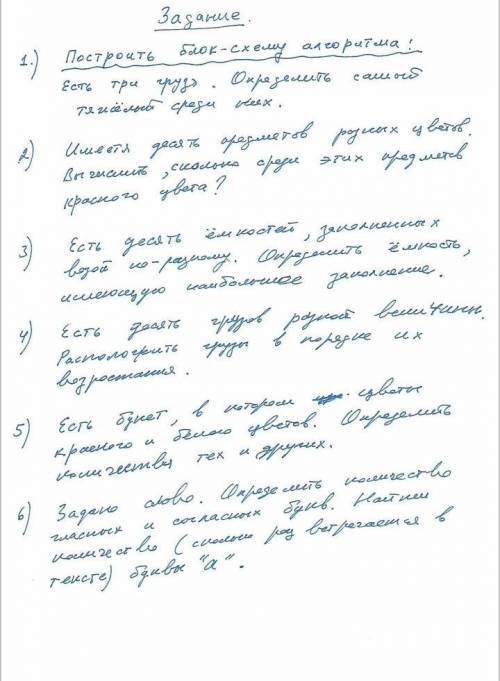 Задание.
1.) Построить блок-схему алгоритма:
Есть три груза. Определить самый
тяжёлый среди них.
2) Имеется десять предметов разных цветов.
Вычислить, сколько среди этих предметов
красного цвета?
3) Есть десять ёмкостей, заполненных
водой по-разному. Определить ёмкость,
имеющую наибольшее заполнение.
4) Есть десять грузов разной величины.
Расположить грузы в порядке их
возростания.
5) Есть букет, в котором цветы
красного и белого цветов. Определить
количества тех и других.
6) Задано слово. Определить количество
гласных и согласных букв. Найти
количество (сколько раз встречается в
тексте) буквы "а".